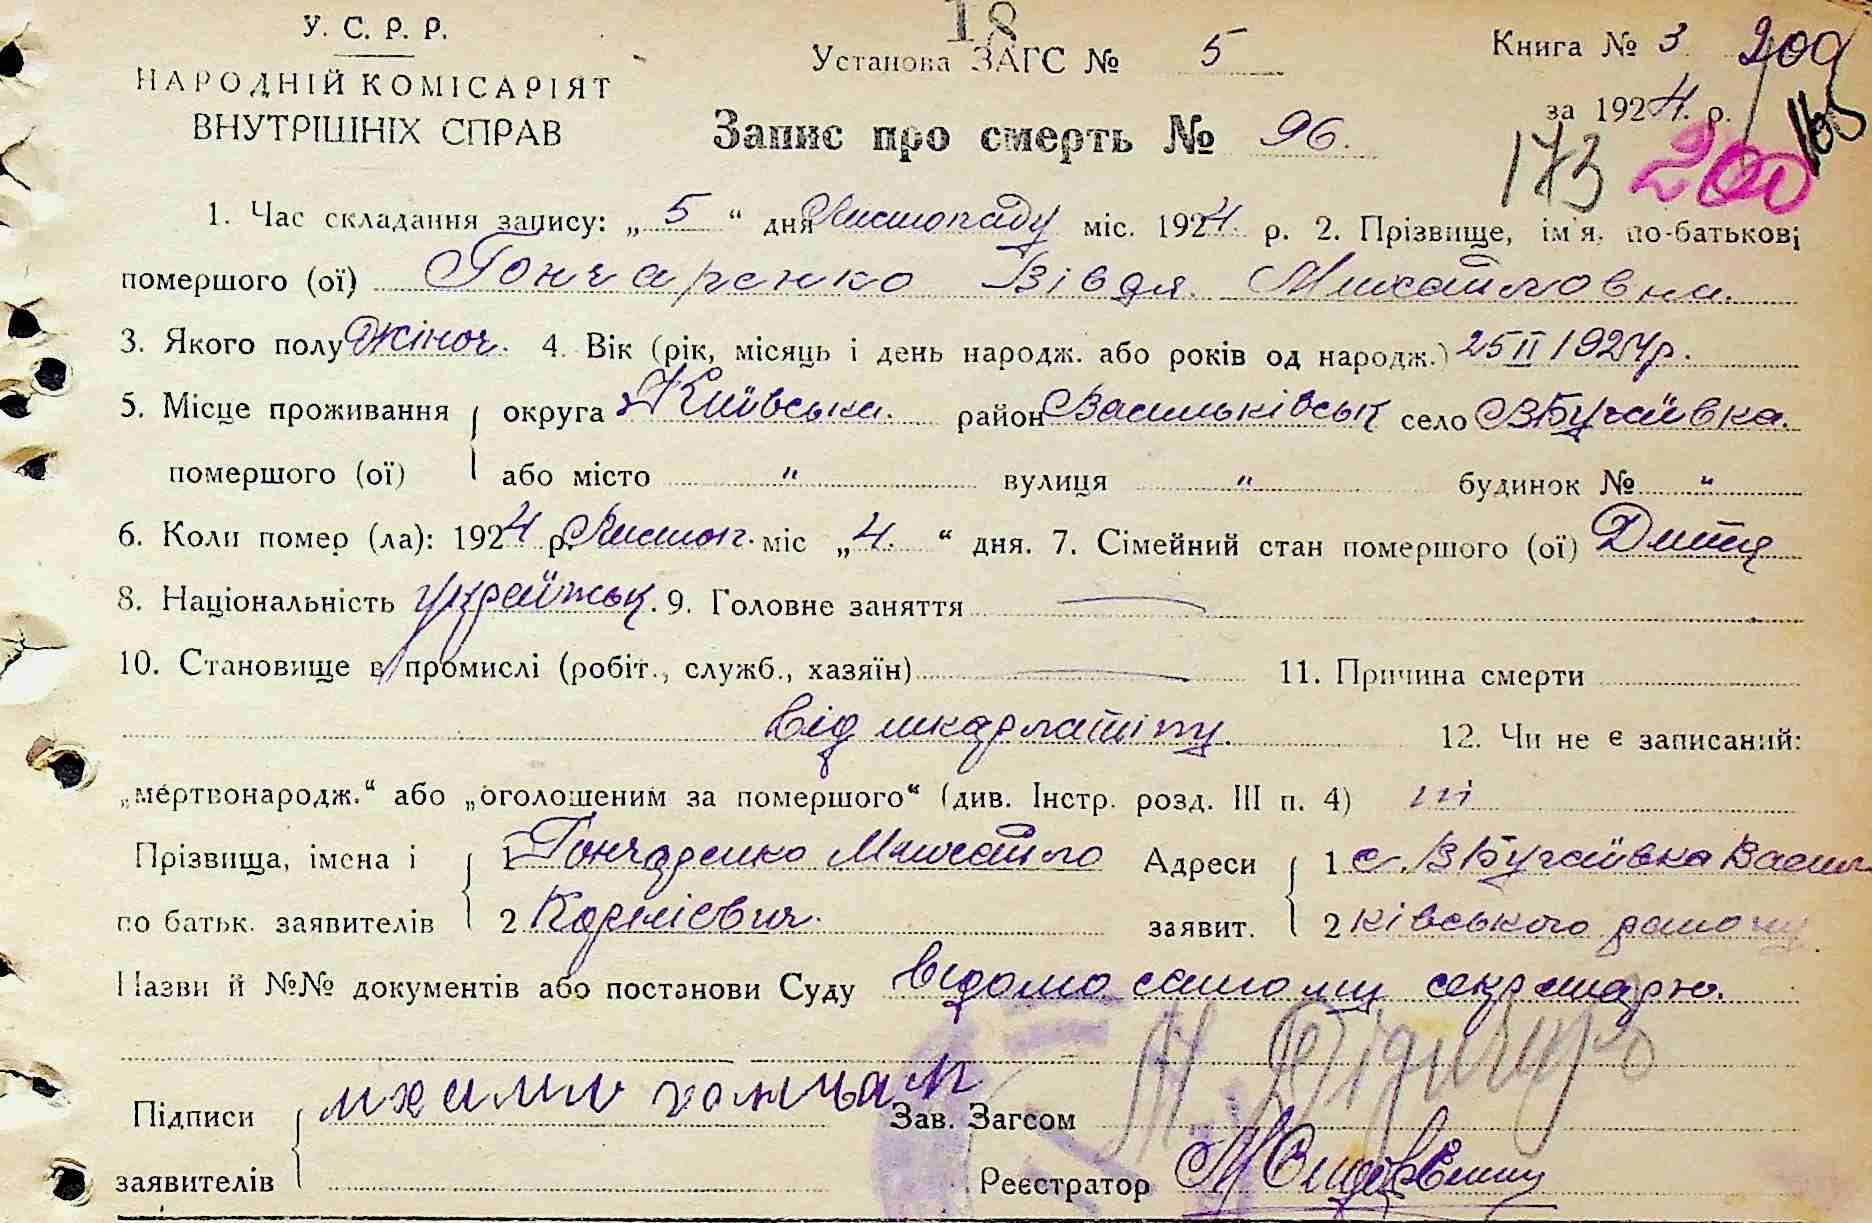 18
У. С. Р. Р.
НАРОДНІЙ КОМІСАРІЯТ
ВНУТРІШНІХ СПРАВ
Установа ЗАГС № 5
Книга № 3
за 1924 р.
209
173 200
Запис про смерть № 96.
1. Час складання запису: „ 5 “ дня Листопаду міс. 1924. р. 2. Прізвище, ім'я, по-батькові
помершого (ої) Гончаренко Вівдя Михайловна.
3. Якого полу Жіноч. 4. Вік (рік, місяць і день народж. або років од народж.) 25 II 1924р.
5. Місце проживання округа Київська. район Васильківськ село ВБугаївка.
помершого (ої) або місто " вулиця " будинок № "
6. Коли помер (ла): 1924 р. Листоп. міс „4.“ дня. 7. Сімейний стан помершого (ої) Дитя
8. Національність україньськ. 9. Головне заняття —
10. Становище в промислі (робіт., служб., хазяїн) — 11. Причина смерти
від шкарлатіни. 12. Чи не є записаний:
„мертвонародж.“ або „оголошеним за помершого“ (див. Інстр. розд. III п. 4) ні
Прізвища, імена і 1 Гончаренко Михайло Адреси 1 с. ВБугаївка Василь
по батьк. заявителів 2 Корнієвич. заявит. 2 ківського району
Назви й №№ документів або постанови Суду відомо самому секретарю.
Підписи Зав. Загсом
заявителів Реєстратор